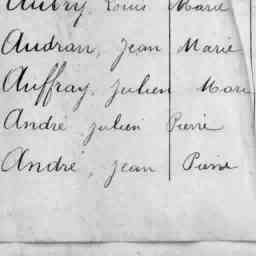 Aubry, Louis Marie
Audran, Jean Marie
Auffray, Julien Mari
André, Julien Pierre
André, Jean Pierre